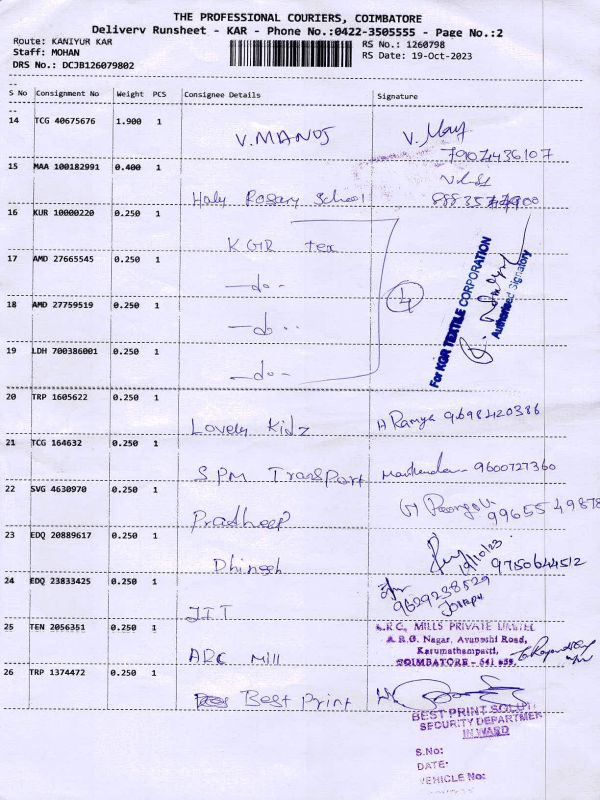 THE PROFESSIONAL COURIERS, COIMBATORE
Delivery Runsheet - KAR - Phone No.:0422-3505555 - Page No.:2
Route: KANIYUR KAR
RS No.: 1260798
Staff: MOHAN
RS Date: 19-Oct-2023
DRS No.: DCJB126079802
S No Consignment No Weight PCS Consignee Details Signature
14 TCG 40675676 1.900 1
V.MANOJ V. 79074436107
15 MAA 100182991 0.400 1
Holy Rosary School
16 KUR 10000220 0.250 1
KGR tex
17 AMD 27665545 0.250 1
-do-
18 AMD 27759519 0.250 1
-do-
4
For KGR TEXTILE CORPORATION
Authorised Signatory
19 LDH 700386001 0.250 1
-do-
20 TRP 1605622 0.250 1
Lovely Kidz A Ramya 9698420386
21 TCG 164632 0.250 1
SPM Transport 9600727360
22 SVG 4630970 0.250 1
Pradheep 9965549878
23 EDQ 20889617 0.250 1
Dhinesh 19/10/23 9750644512
24 EDQ 23833425 0.250 1
9629238529
JIT
25 TEN 2056351 0.250 1
ARC Mill
A.R.C. MILLS PRIVATE LIMITED
A.R.G. Nagar, Avanashi Road,
Karumathampatti,
COIMBATORE - 641 659.
26 TRP 1374472 0.250 1
Best Print
BEST PRINT SOLUT
SECURITY DEPARTMEN
INWARD
S.No:
DATE:
VEHICLE No: